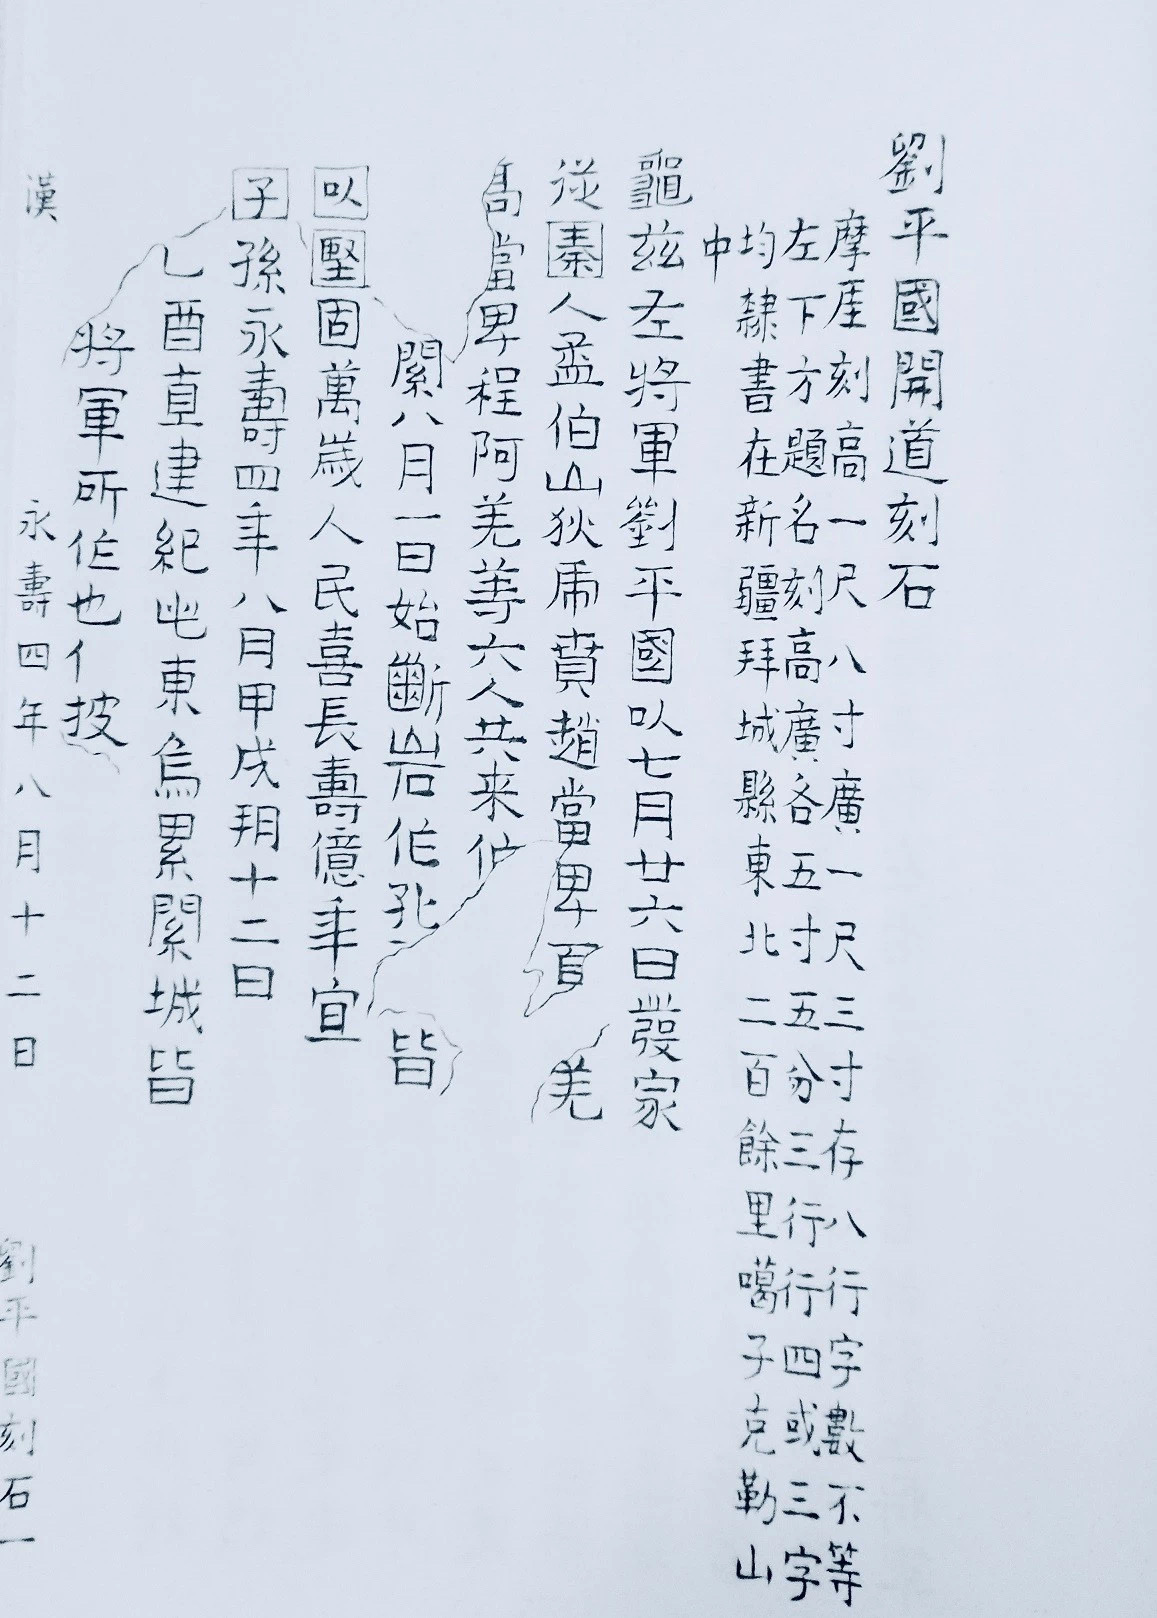 劉平國開道刻石
摩厓刻高一尺八寸廣一尺三寸存八行字數不等
左下方題名刻高廣各五寸五分三行行四或三字
均隸書在新疆拜城縣東北二百餘里噶子克勒山
中
龜茲左將軍劉平國以七月廿六日發家
從秦人孟伯山狄虎賁趙當卑夏羌
當卑程阿羌等六人共来作
關八月一日始斷岩作孔皆
以堅固萬歲人民喜長壽億年宜
子孫永壽四年八月甲戌朔十二日
乙酉直建紀此東烏累關城皆
將軍所作也亻披
漢 永壽四年八月十二日 劉平國刻石一